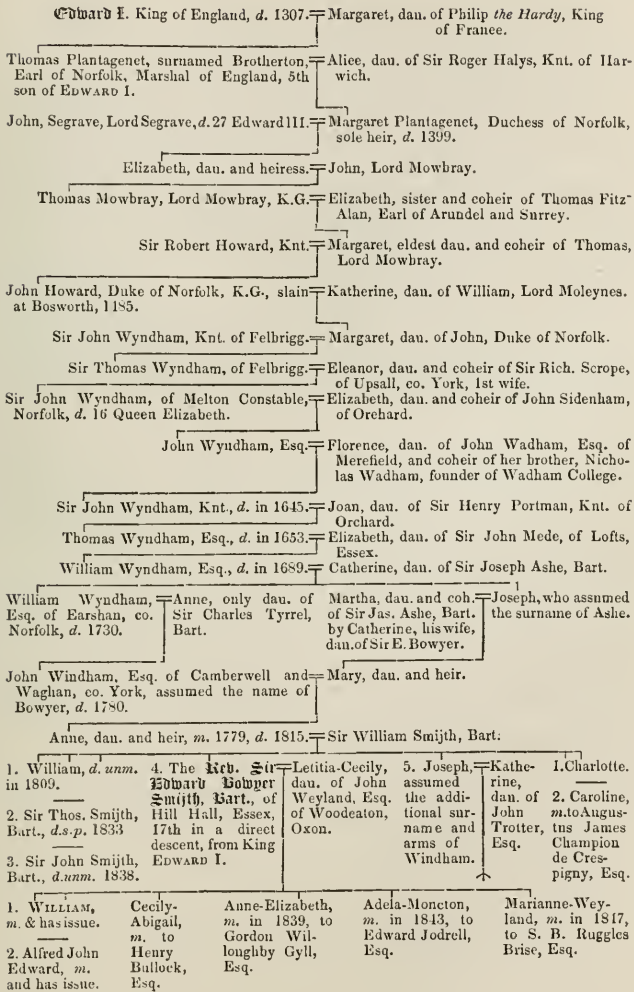 Edward I. King of England, d. 1307. Margaret, dau. of Philip the Hardy, King
of France.
Thomas Plantagenet, surnamed Brotherton,
Earl of Norfolk, Marshal of England, 5th
son of EDWARD I.
Alice, dau. of Sir Roger Halys, Knt. of Har-
wich.
John, Segrave, Lord Segrave, d. 27 Edward III.
Margaret Plantagenet, Duchess of Norfolk,
sole heir, d. 1399.
Elizabeth, dau. and heiress. John, Lord Mowbray.
Thomas Mowbray, Lord Mowbray, K.G.
Elizabeth, sister and coheir of Thomas Fitz-
Alan, Earl of Arundel and Surrey.
Sir Robert Howard, Knt.
Margaret, eldest dau. and coheir of Thomas,
Lord Mowbray.
John Howard, Duke of Norfolk, K.G., slain
at Bosworth, 1485.
Katherine, dau. of William, Lord Moleynes.
Sir John Wyndham, Knt. of Felbrigg. Margaret, dau. of John, Duke of Norfolk.
Sir Thomas Wyndham, of Felbrigg.
Eleanor, dau. and coheir of Sir Rich. Scrope,
of Upsall, co. York, 1st wife.
Sir John Wyndham, of Melton Constable,
Norfolk, d. 16 Queen Elizabeth.
Elizabeth, dau. and coheir of John Sidenham,
of Orchard.
John Wyndham, Esq.
Florence, dau. of John Wadham, Esq. of
Merefield, and coheir of her brother, Nicho-
las Wadham, founder of Wadham College.
Sir John Wyndham, Knt., d. in 1645.
Joan, dau. of Sir Henry Portman, Knt. of
Orchard.
Thomas Wyndham, Esq., d. in 1653.
Elizabeth, dau. of Sir John Mede, of Lofts,
Essex.
William Wyndham, Esq., d. in 1689. Catherine, dau. of Sir Joseph Ashe, Bart.
William Wyndham,
Esq. of Earshan, co.
Norfolk, d. 1730.
Anne, only dau. of
Sir Charles Tyrrel,
Bart.
Martha, dau. and coh.
of Sir Jas. Ashe, Bart.
by Catherine, his wife,
dau. of Sir E. Bowyer.
Joseph, who assumed
the surname of Ashe.
John Windham, Esq. of Camberwell and
Waghan, co. York, assumed the name of
Bowyer, d. 1780.
Mary, dau. and heir.
Anne, dau. and heir, m. 1779, d. 1815. Sir William Smijth, Bart.
1. William, d. unm.
in 1809.
2. Sir Thos. Smijth,
Bart., d.s.p. 1833
3. Sir John Smijth,
Bart., d.unm. 1838.
4. The Rev. Sir
Edward Bowyer
Smijth, Bart., of
Hill Hall, Essex,
17th in a direct
descent, from King
EDWARD I.
Letitia-Cecily,
dau. of John
Weyland, Esq.
of Woodeaton,
Oxon.
5. Joseph,
assumed
the addi-
tional sur-
name and
arms of
Windham.
Kathe-
rine,
dau. of
John
Trotter,
Esq.
1. Charlotte.
2. Caroline,
m. to Augus-
tus James
Champion
de Cres-
pigny, Esq.
1. WILLIAM,
m. & has issue.
2. Alfred John
Edward, m.
and has issue.
Cecily-
Abigail,
m. to
Henry
Bullock,
Esq.
Anne-Elizabeth,
m. in 1839, to
Gordon Wil-
loughby Gyll,
Esq.
Adela-Moncton,
m. in 1843, to
Edward Jodrell,
Esq.
Marianne-Wey-
land, m. in 1847,
to S. B. Ruggles
Brise, Esq.